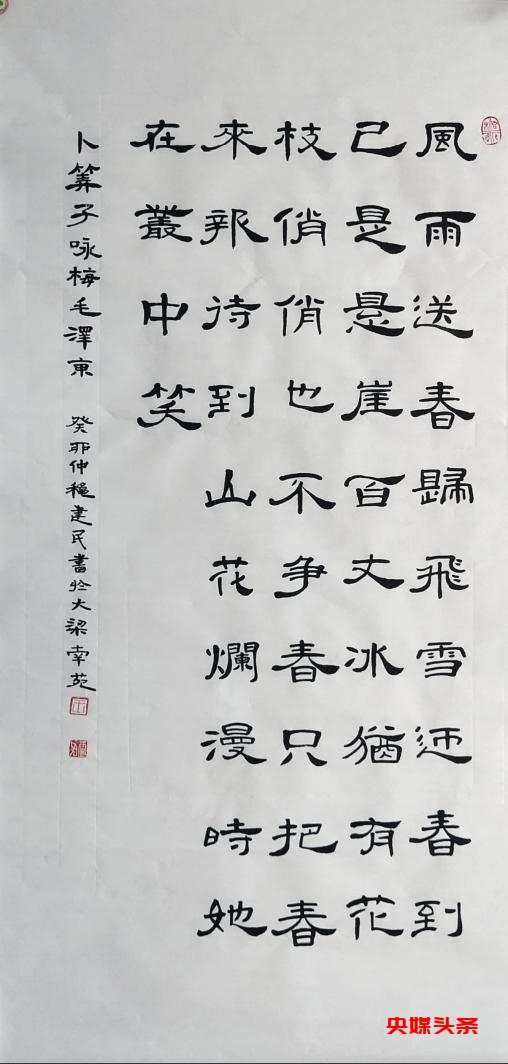 風雨送春歸飛雪迎春到
已是懸崖百丈冰猶有花
枝俏俏也不争春只把春
來報待到山花爛漫時她
在叢中笑
卜筭子咏梅毛澤東 癸卯仲穐建民書於大梁南苑
央媒头条